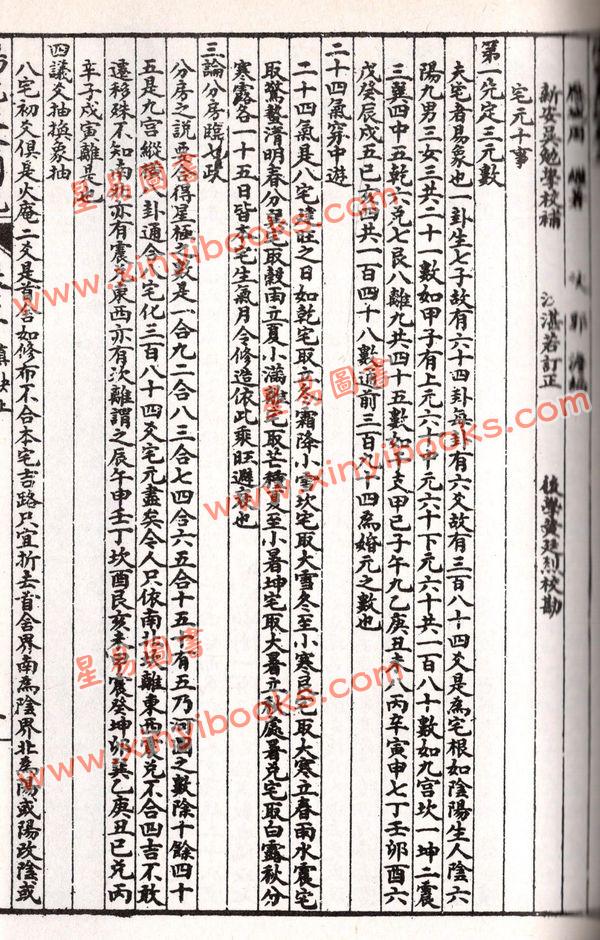 應城周
新安吳勉學校補
湛若訂正
後學黃廷烈校勘
宅元十事
第一先定三元數
夫宅者易象也一卦生七子故有六十四卦每卦有六爻故有三百八十四爻是為宅根如陰陽生人陰六
陽九男三女三共二十一數如甲子有上元六十中元六十下元六十共一百八十數如九宮坎一坤二震
三巽四中五乾六兌七艮八離九共四十五數如干支甲己子午九乙庚丑未八丙辛寅申七丁壬卯酉六
戊癸辰戌五巳亥四共一百四十八數通前三百八十四為婚元之數也
二十四氣穿中遊
二十四氣是八宅建旺之日如乾宅取立冬霜降小雪坎宅取大雪冬至小寒艮宅取大寒立春雨水震宅
取驚蟄清明春分巽宅取穀雨立夏小滿離宅取芒種夏至小暑坤宅取大暑立秋處暑兌宅取白露秋分
寒露各一十五日皆本宅生氣月令修造依此乘旺避衰也
三論分房臨七政
分房之說要合得星極多數是一合九二合八三合七四合六五合十五十有五乃河圖之數除十餘四十
五是九宮縱橫八卦通合八宅化三百八十四爻宅元盡矣今人只依南北坎離東西震兌不合四吉不敢
遷移殊不知南北亦有震兌東西亦有坎離謂之辰午申壬丁坎酉艮亥未甲震癸坤卯巽乙庚丑巳兌丙
辛子戌寅離是也
四議爻抽換象抽
八宅初爻俱是火庵二爻是首舍如修布不合本宅吉路只宜折去首舍界南為陰界北為陽或陽改陰或
星易圖書
www.xinyibooks.com
星易圖書
www.xinyibooks.com
星易圖書
www.xinyibooks.com